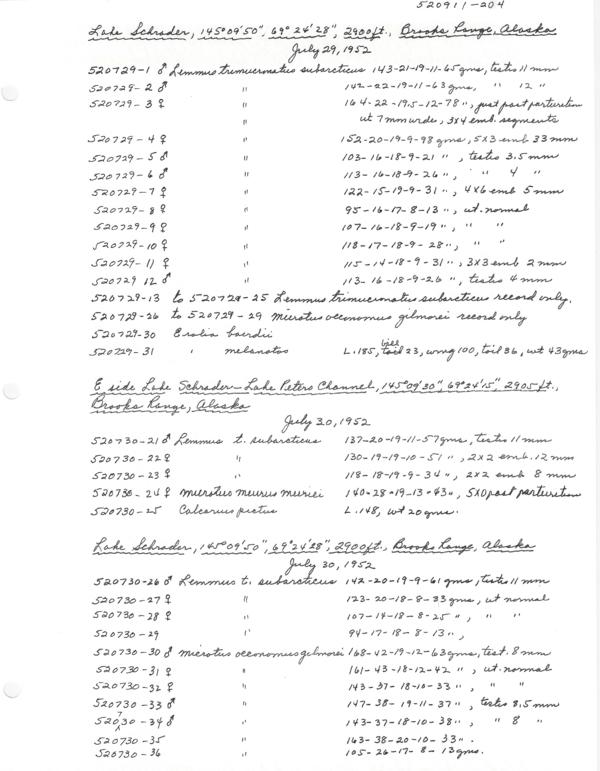 520911-204
Lake Schrader, 145°09'50", 69°24'28", 2900ft., Brooks Range, Alaska
July 29, 1952
520729-1 ♂ Lemmus trimucronatus subarcticus 143-21-19-11-65 gms, testis 11 mm
520729-2 ♂ " 142-22-19-11-63 gms, " 12 "
520729-3 ♀ " 164-22-19.5-12-78 ", just post parturition
" ut 7mm wide, 3x4 emb. segments
520729-4 ♀ " 152-20-19-9-98 gms, 5x3 emb 33 mm
520729-5 ♂ " 103-16-18-9-21 ", testis 3.5 mm
520729-6 ♂ " 113-16-18-9-26 ", " 4 "
520729-7 ♀ " 122-15-19-9-31 ", 4x6 emb 5 mm
520729-8 ♀ " 95-16-17-8-13 ", ut. normal
520729-9 ♀ " 107-16-18-9-19 ", " "
520729-10 ♀ " 118-17-18-9-28 ", " "
520729-11 ♀ " 115-14-18-9-31 ", 3x3 emb 2 mm
520729 12 ♂ " 113-16-18-9-26 ", testis 4 mm
520729-13 to 520729-25 Lemmus trimucronatus subarcticus record only.
520729-26 to 520729-29 Microtus oeconomus gilmorei record only
520729-30 Erolia bairdii
520729-31 " melanotos L.185, bill 23, wing 100, tail 36, wt 43 gms
E side Lake Schrader-Lake Peters Channel, 145°09'30", 69°24'15", 2905 ft.,
Brooks Range, Alaska
July 30, 1952
520730-21 ♂ Lemmus t. subarcticus 137-20-19-11-57 gms, testis 11 mm
520730-22 ♀ " 130-19-19-10-51 ", 2x2 emb. 12 mm
520730-23 ♀ " 118-18-19-9-34 ", 2x2 emb 8 mm
520730-24 ♀ Microtus miurus muriei 140-28-19-13-43 ", 5x0 post parturition
520730-25 Calcarius pictus L.148, wt 20 gms.
Lake Schrader, 145°09'50", 69°24'28", 2900ft., Brooks Range, Alaska
July 30, 1952
520730-26 ♂ Lemmus t. subarcticus 142-20-19-9-61 gms, testis 11 mm
520730-27 ♀ " 123-20-18-8-33 gms, ut normal
520730-28 ♀ " 107-14-18-8-25 ", " "
520730-29 " 94-17-18-8-13 ",
520730-30 ♂ Microtus oeconomus gilmorei 168-42-19-12-63 gms, test. 8 mm
520730-31 ♀ " 161-43-18-12-42 ", ut. normal
520730-32 ♀ " 143-37-18-10-33 ", " "
520730-33 ♂ " 147-38-19-11-37 ", testis 8.5 mm
520730-34 ♂ " 143-37-18-10-38 ", " 8 "
520730-35 " 163-38-20-10-33 ".
520730-36 " 105-26-17-8-13 gms.